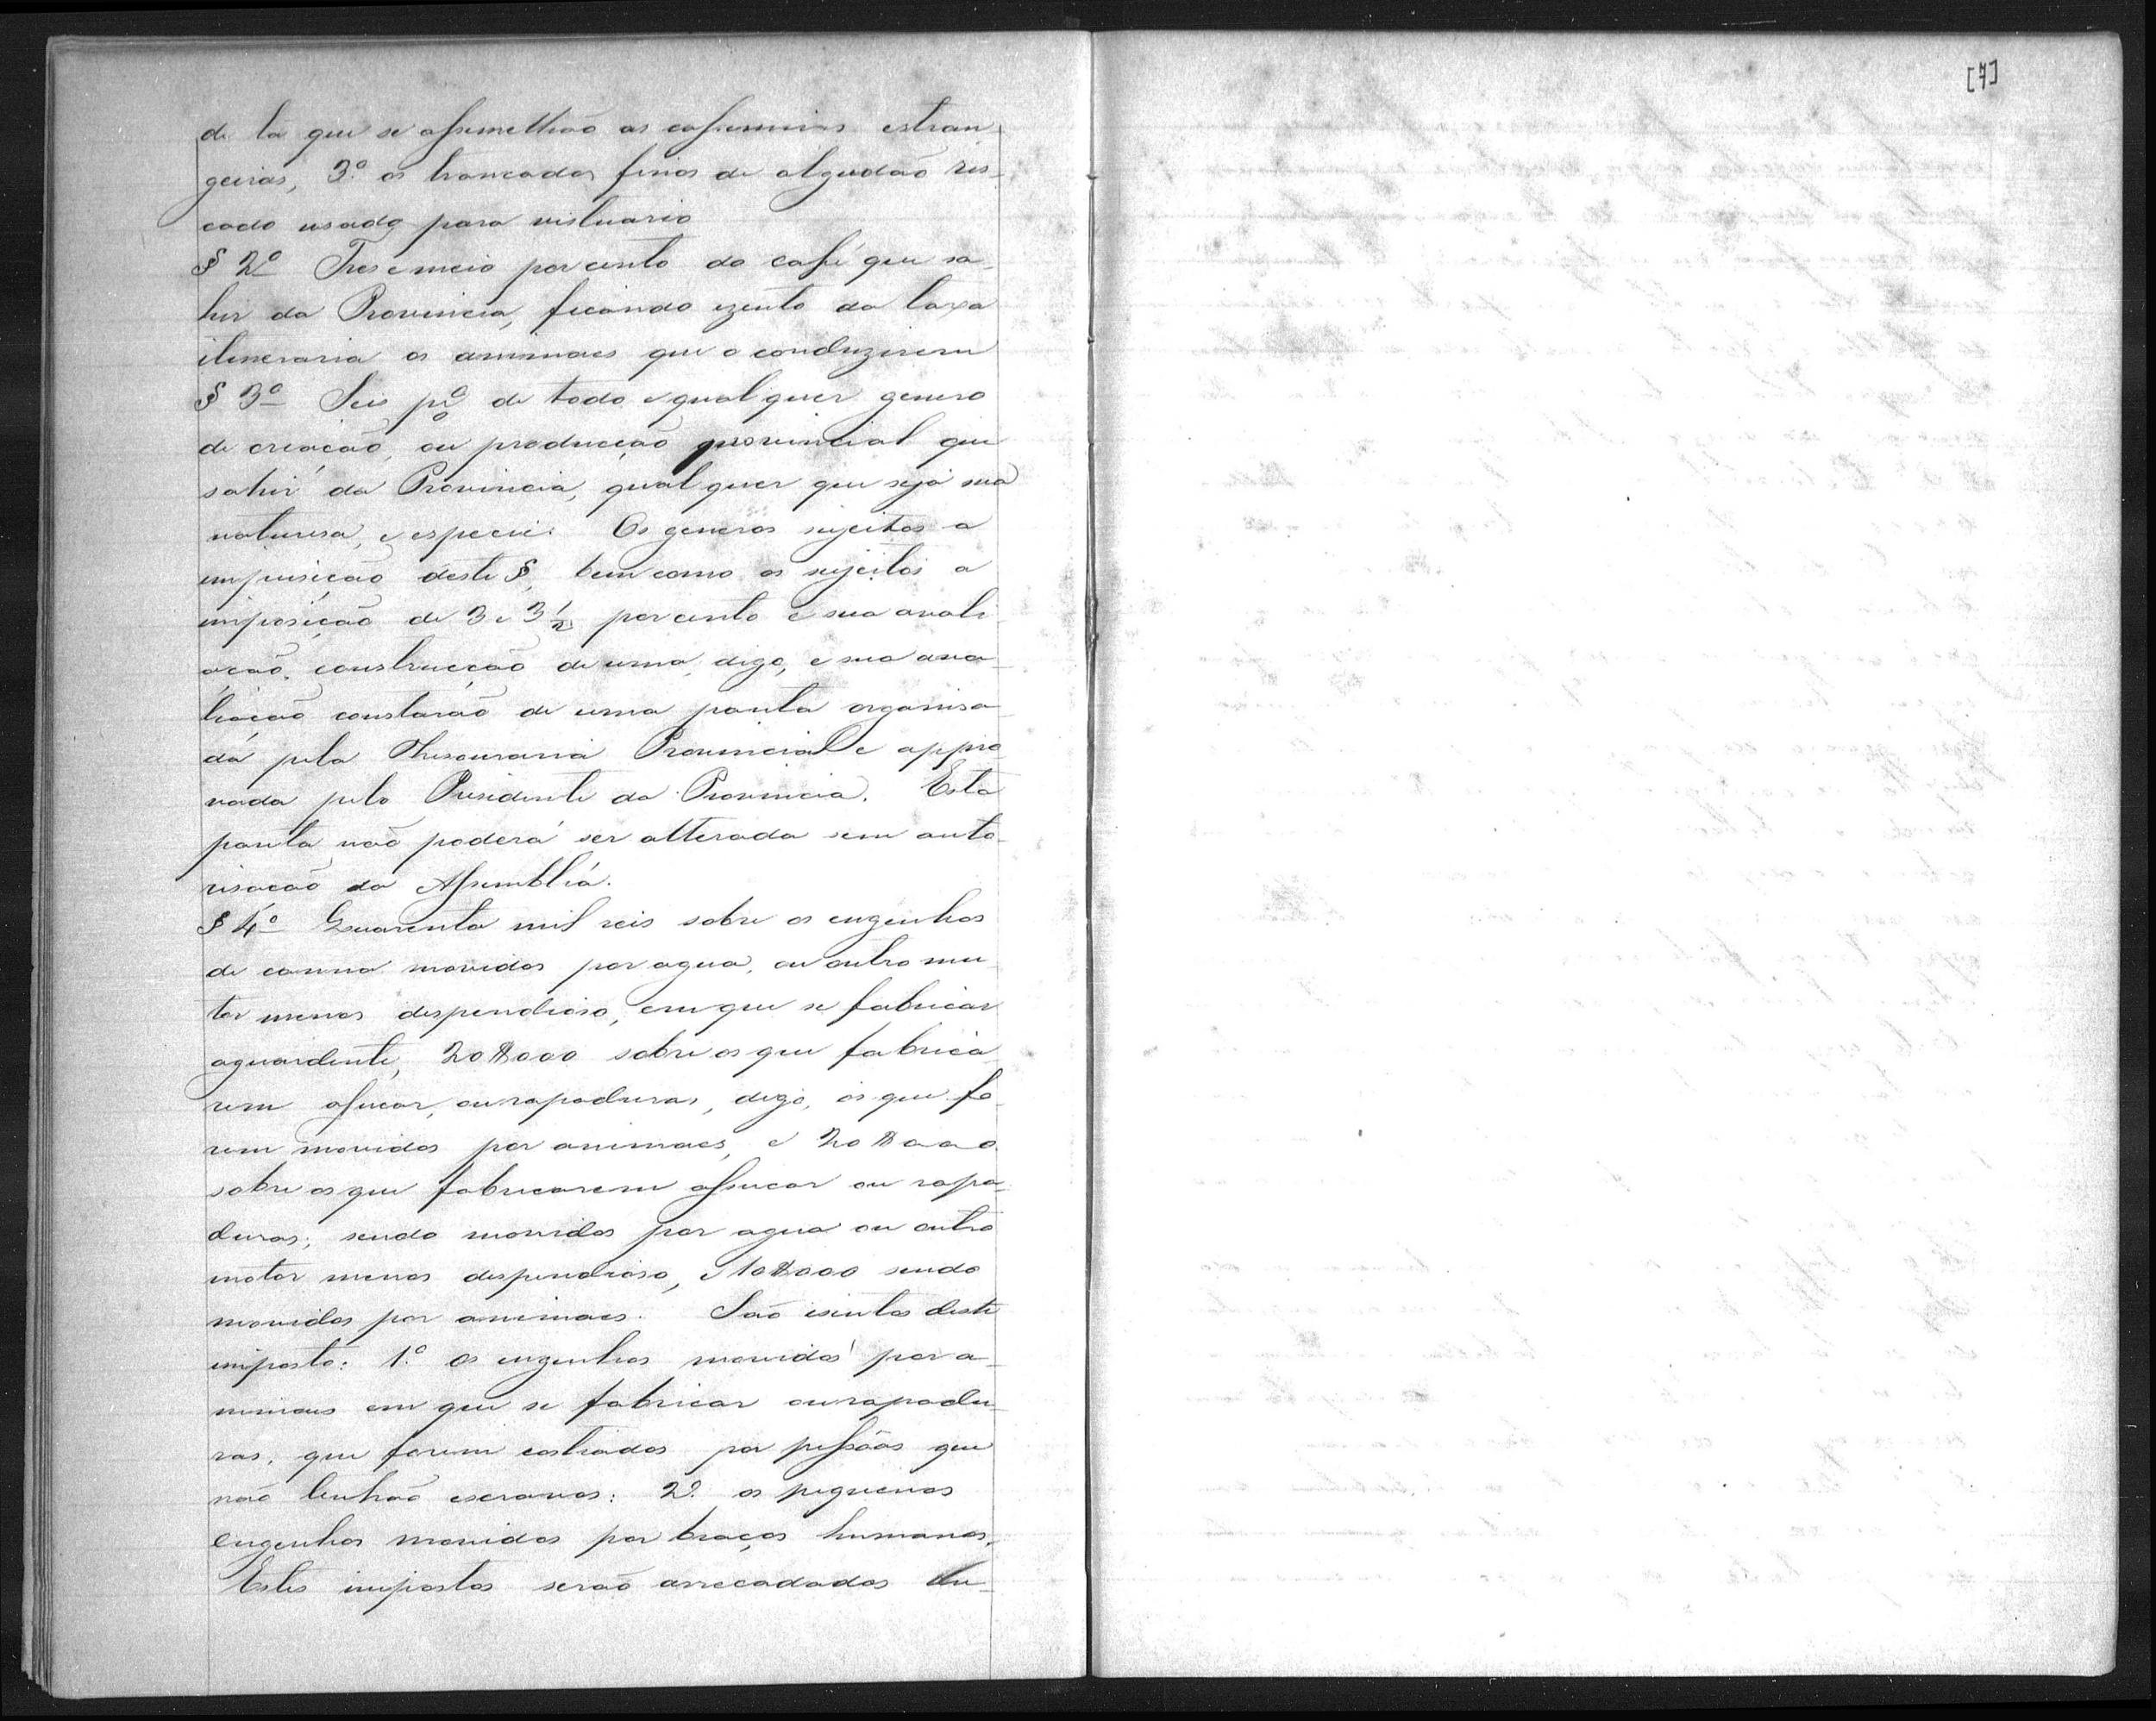 [7]
de lã que se assemelhão as casemiras estran
geiras, 3º os trançados finos de algodão ris-
cado usado para vestuario
§ 2º Tres e meio por cento do café que sa-
hir da Provincia, ficando izento da taxa
itineraria os animaes que o conduzirem
§ 3º Seis p% de todo e qual quer genero
de creação, ou producção provincial que
sahir da Provincia, qual quer que seja sua
naturesa, e especie. Os generos sujeitos a
imposição deste §, bem como os sujeitos a
imposição de 3 e 3 1/2 por cento e sua avali
ação, construcção de uma, digo, e sua ava-
liação constarão de uma pauta organisa
da pela Thesouraria Provincial e appro-
vada pelo Presidente da Provincia. Esta
pauta não poderá ser alterada sem auto-
risação da Assembléa.
§ 4º Quarenta mil reis sobre os engenhos
de canna movidos por agua, ou outro mu-
tor menos despendioso, em que se fabricar
aguardente, 20$000 sobre os que fabrica
rem assucar, ou rapaduras, digo, os que fo-
rem movidos por animaes, e 20$000
sobre os que fabricarem assucar ou rapa-
duras; sendo movidos por agua ou outro
motor menos despendioso, e 10$000 sendo
movidos por animaes. São isentos deste
imposto: 1º os engenhos movidos por a-
nimaes em que se fabricar ou rapadu-
ras, que forem por pessôas que
não tenhão escravos: 2º os pequenos
engenhos movidos por braços humanos.
Estes impostos serão arrecadados du-